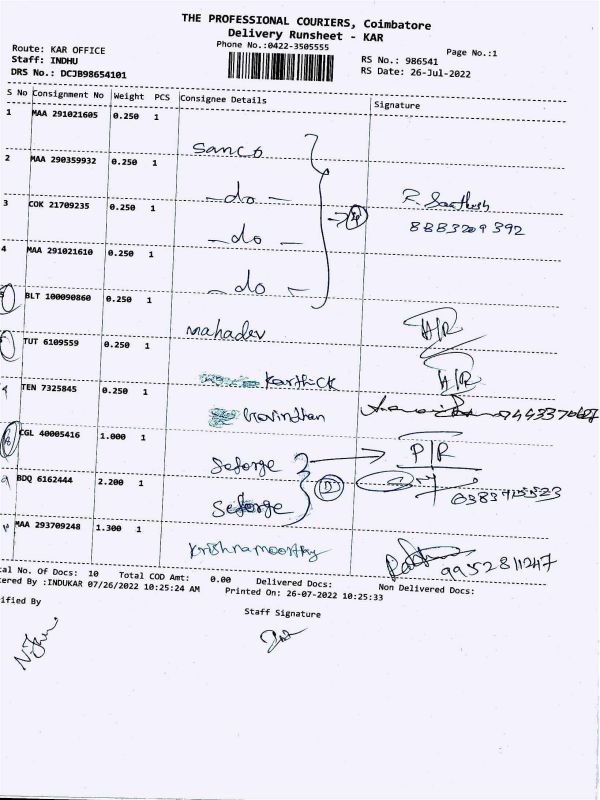 THE PROFESSIONAL COURIERS, Coimbatore
Delivery Runsheet - KAR
Phone No.:0422-3505555
Page No.:1
Route: KAR OFFICE
Staff: INDHU
DRS No.: DCJB98654101
RS No.: 986541
RS Date: 26-Jul-2022
S No Consignment No Weight PCS Consignee Details Signature
1 MAA 291021605 0.250 1 Sanco
2 MAA 290359932 0.250 1 -do- R. Santhosh
3 COK 21709235 0.250 1 -do- 8883209392
4 MAA 291021610 0.250 1 -do-
5 BLT 100090860 0.250 1 mahadev A/R
TUT 6109559 0.250 1 Karthick A/R
TEN 7325845 0.250 1 Govindhan
8 CGL 40005416 1.000 1 Seforge P/R
9 BDQ 6162444 2.200 1 Seforge
MAA 293709248 1.300 1 Krishnamoorthy 9952811247
al No. Of Docs: 10 Total COD Amt: 0.00 Delivered Docs: Non Delivered Docs:
ered By :INDUKAR 07/26/2022 10:25:24 AM Printed On: 26-07-2022 10:25:33
ified By
Staff Signature